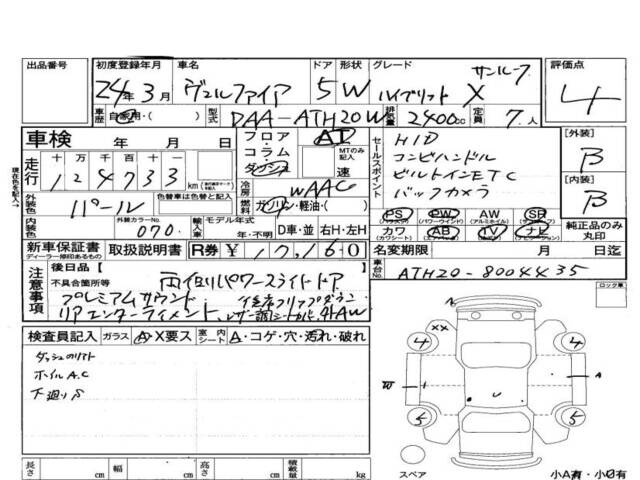 出品番号 初度登録年月 車名 ドア 形状 グレード 評価点
24年3月 ヴェルファイア 5 W ハイブリット X サンルーフ 4
車歴 自家用・( ) 型式 DAA-ATH20W 排気量 2400cc 定員 7人
車検 年 月 日 フロア・コラム・ダッシュ AT MTのみ記入 速
セールスポイント HID
コンビハンドル
ビルトインETC
バックカメラ
[外装] B
[内装] B
現在色を記入→
走行 十 万 千 百 十 一
124733 km
冷房 WAAC
外装色 パール 色替車は色替と記入 燃料 ガソリン・軽油・( )
PS PW AW SR
(パワステ) (パワーウインド) (アルミホイル) (サンルーフ)
カワ AB TV ナビ
純正品のみ丸印
内装色 外装カラーNo. 070 輸入車 モデル年式 年・不明 D車・並 右H・左H
新車保証書 取扱説明書 R券 ¥17,160 名変期限 月 日迄
ディーラー捺印あるもの
車台No. ATH20-8004435
注意事項 後日品〔 〕
不具合箇所等 両側パワースライドドア
プレミアムサウンド
リアエンターテイメント
ロック車
検査員記入 ガラス A・X要ス 室内シート A・コゲ・穴・汚れ・破れ
ダッシュのリフト
ホイルA.C
下廻りS
XX 4 4
W A
5 5
スペア 小A有・小U有
長さ cm 幅 cm 高さ cm 積載量 kg